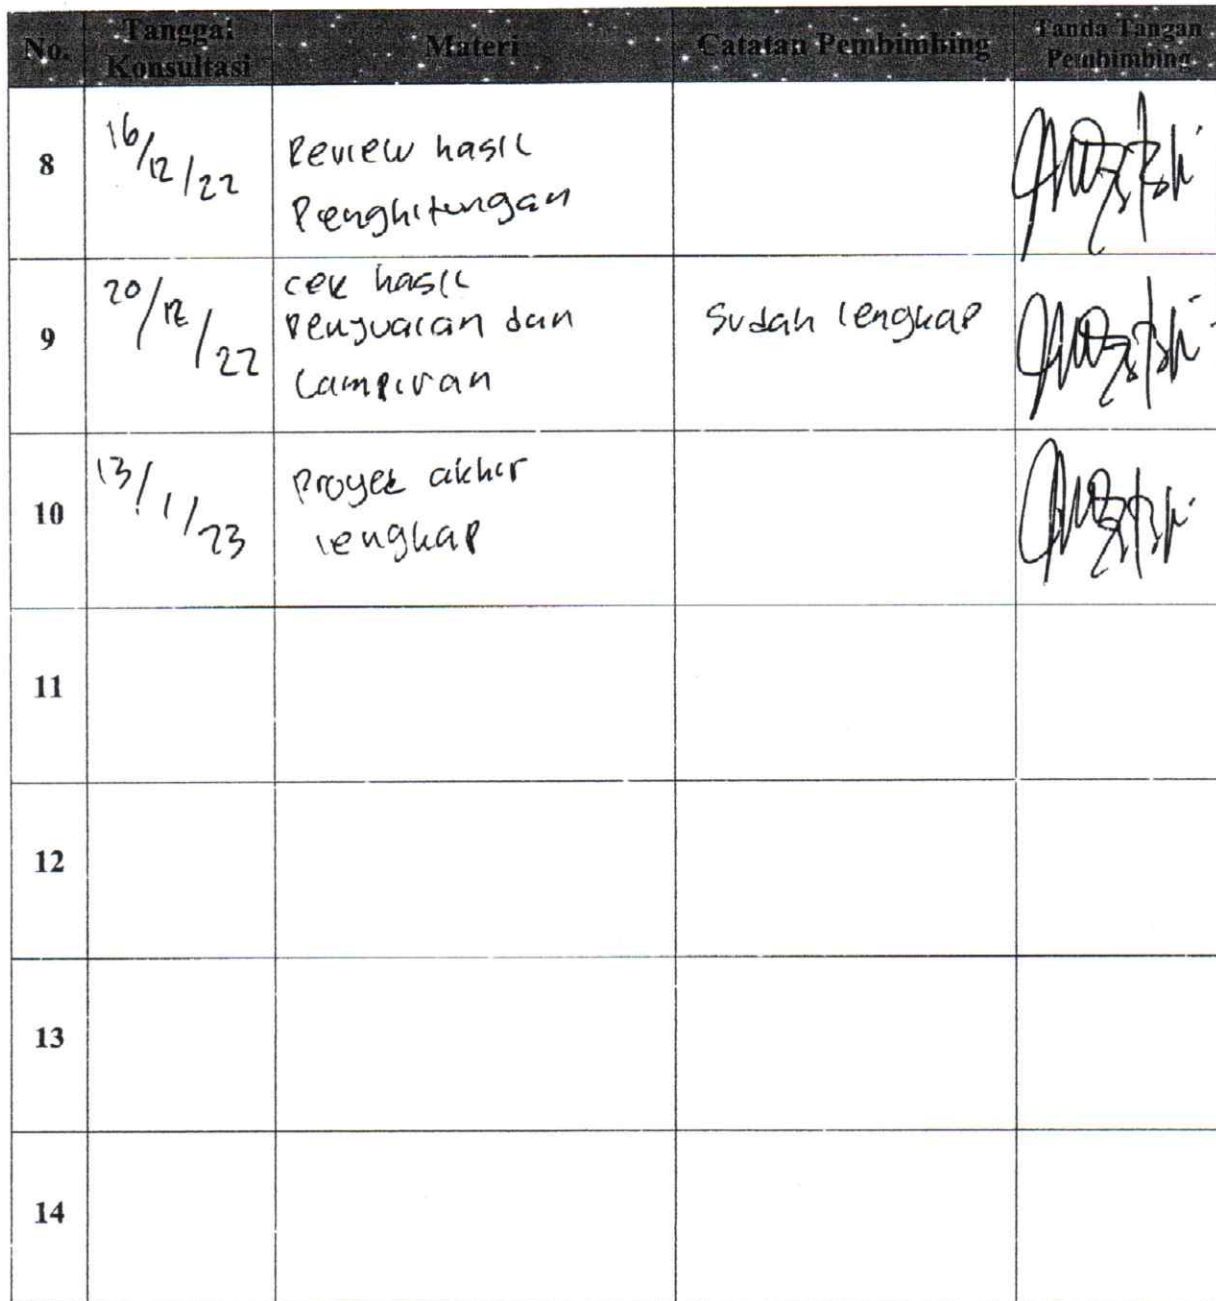 No.
Tanggal
Konsultasi
Materi
Catatan Pembimbing
Tanda Tangan
Pembimbing
8
16/12/22
Review hasil
Penghitungan
9
20/12/22
cek hasil
Penjualan dan
Lampiran
Sudah lengkap
10
13/1/23
Proyek akhir
lengkap
11
12
13
14